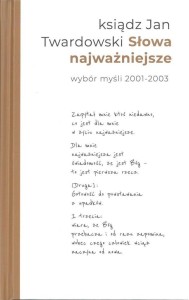 ksiądz Jan
Twardowski Słowa
najważniejsze
wybór myśli 2001-2003
Zapytał mnie ktoś niedawno,
co jest dla mnie
w życiu najważniejsze.
Dla mnie
najważniejsza jest
świadomość, że jest Bóg –
to jest pierwsza rzecz.
(Druga):
Gotowość do powstawania
z upadków.
I trzecie:
wiara, że Bóg
przebacza i od razu zapomina,
wobec czego człowiek wciąż
zaczyna od nowa.